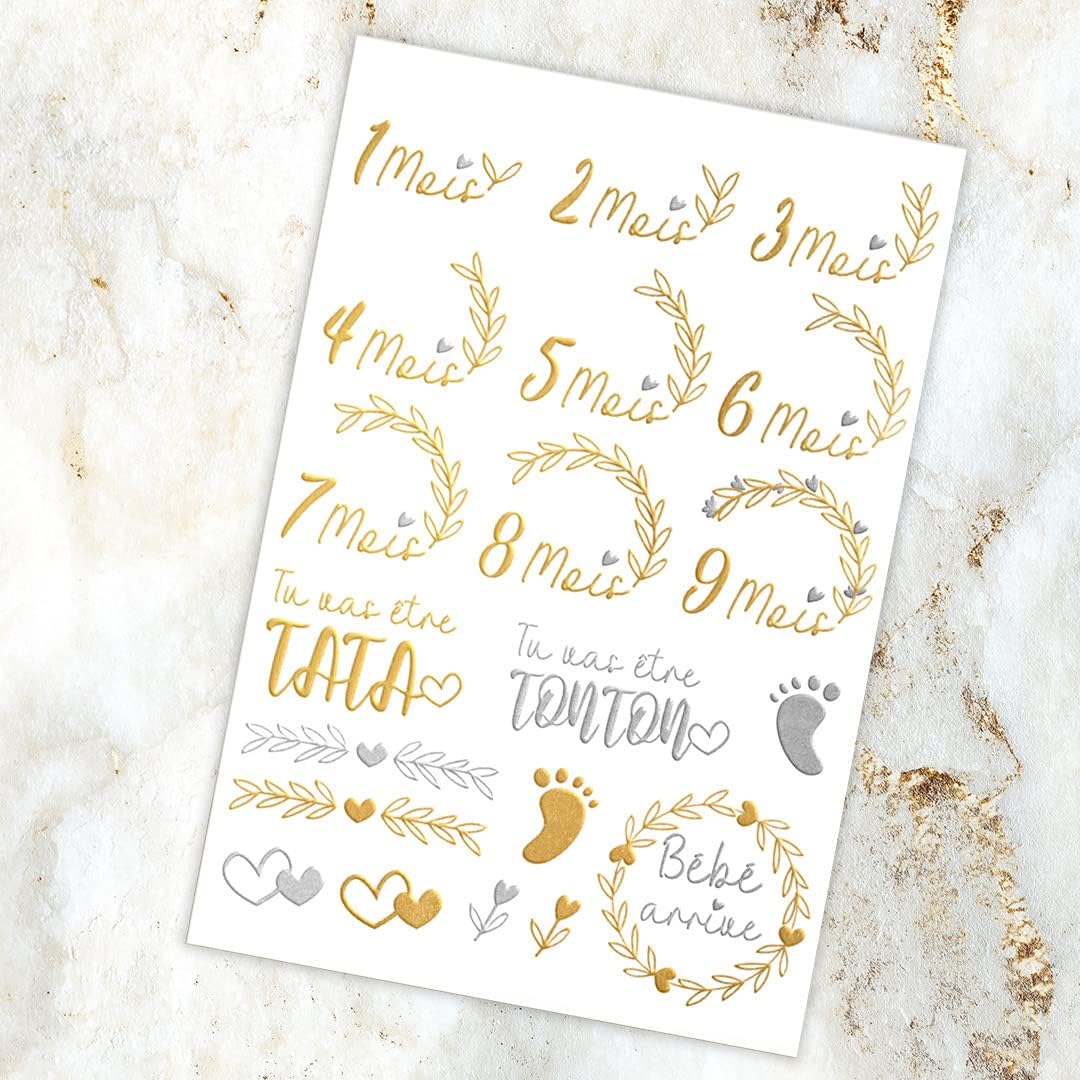 1 Mois
2 Mois
3 Mois
4 Mois
5 Mois
6 Mois
7 Mois
8 Mois
9 Mois
Tu vas être
TATA
Tu vas être
TONTON
Bébé
arrive